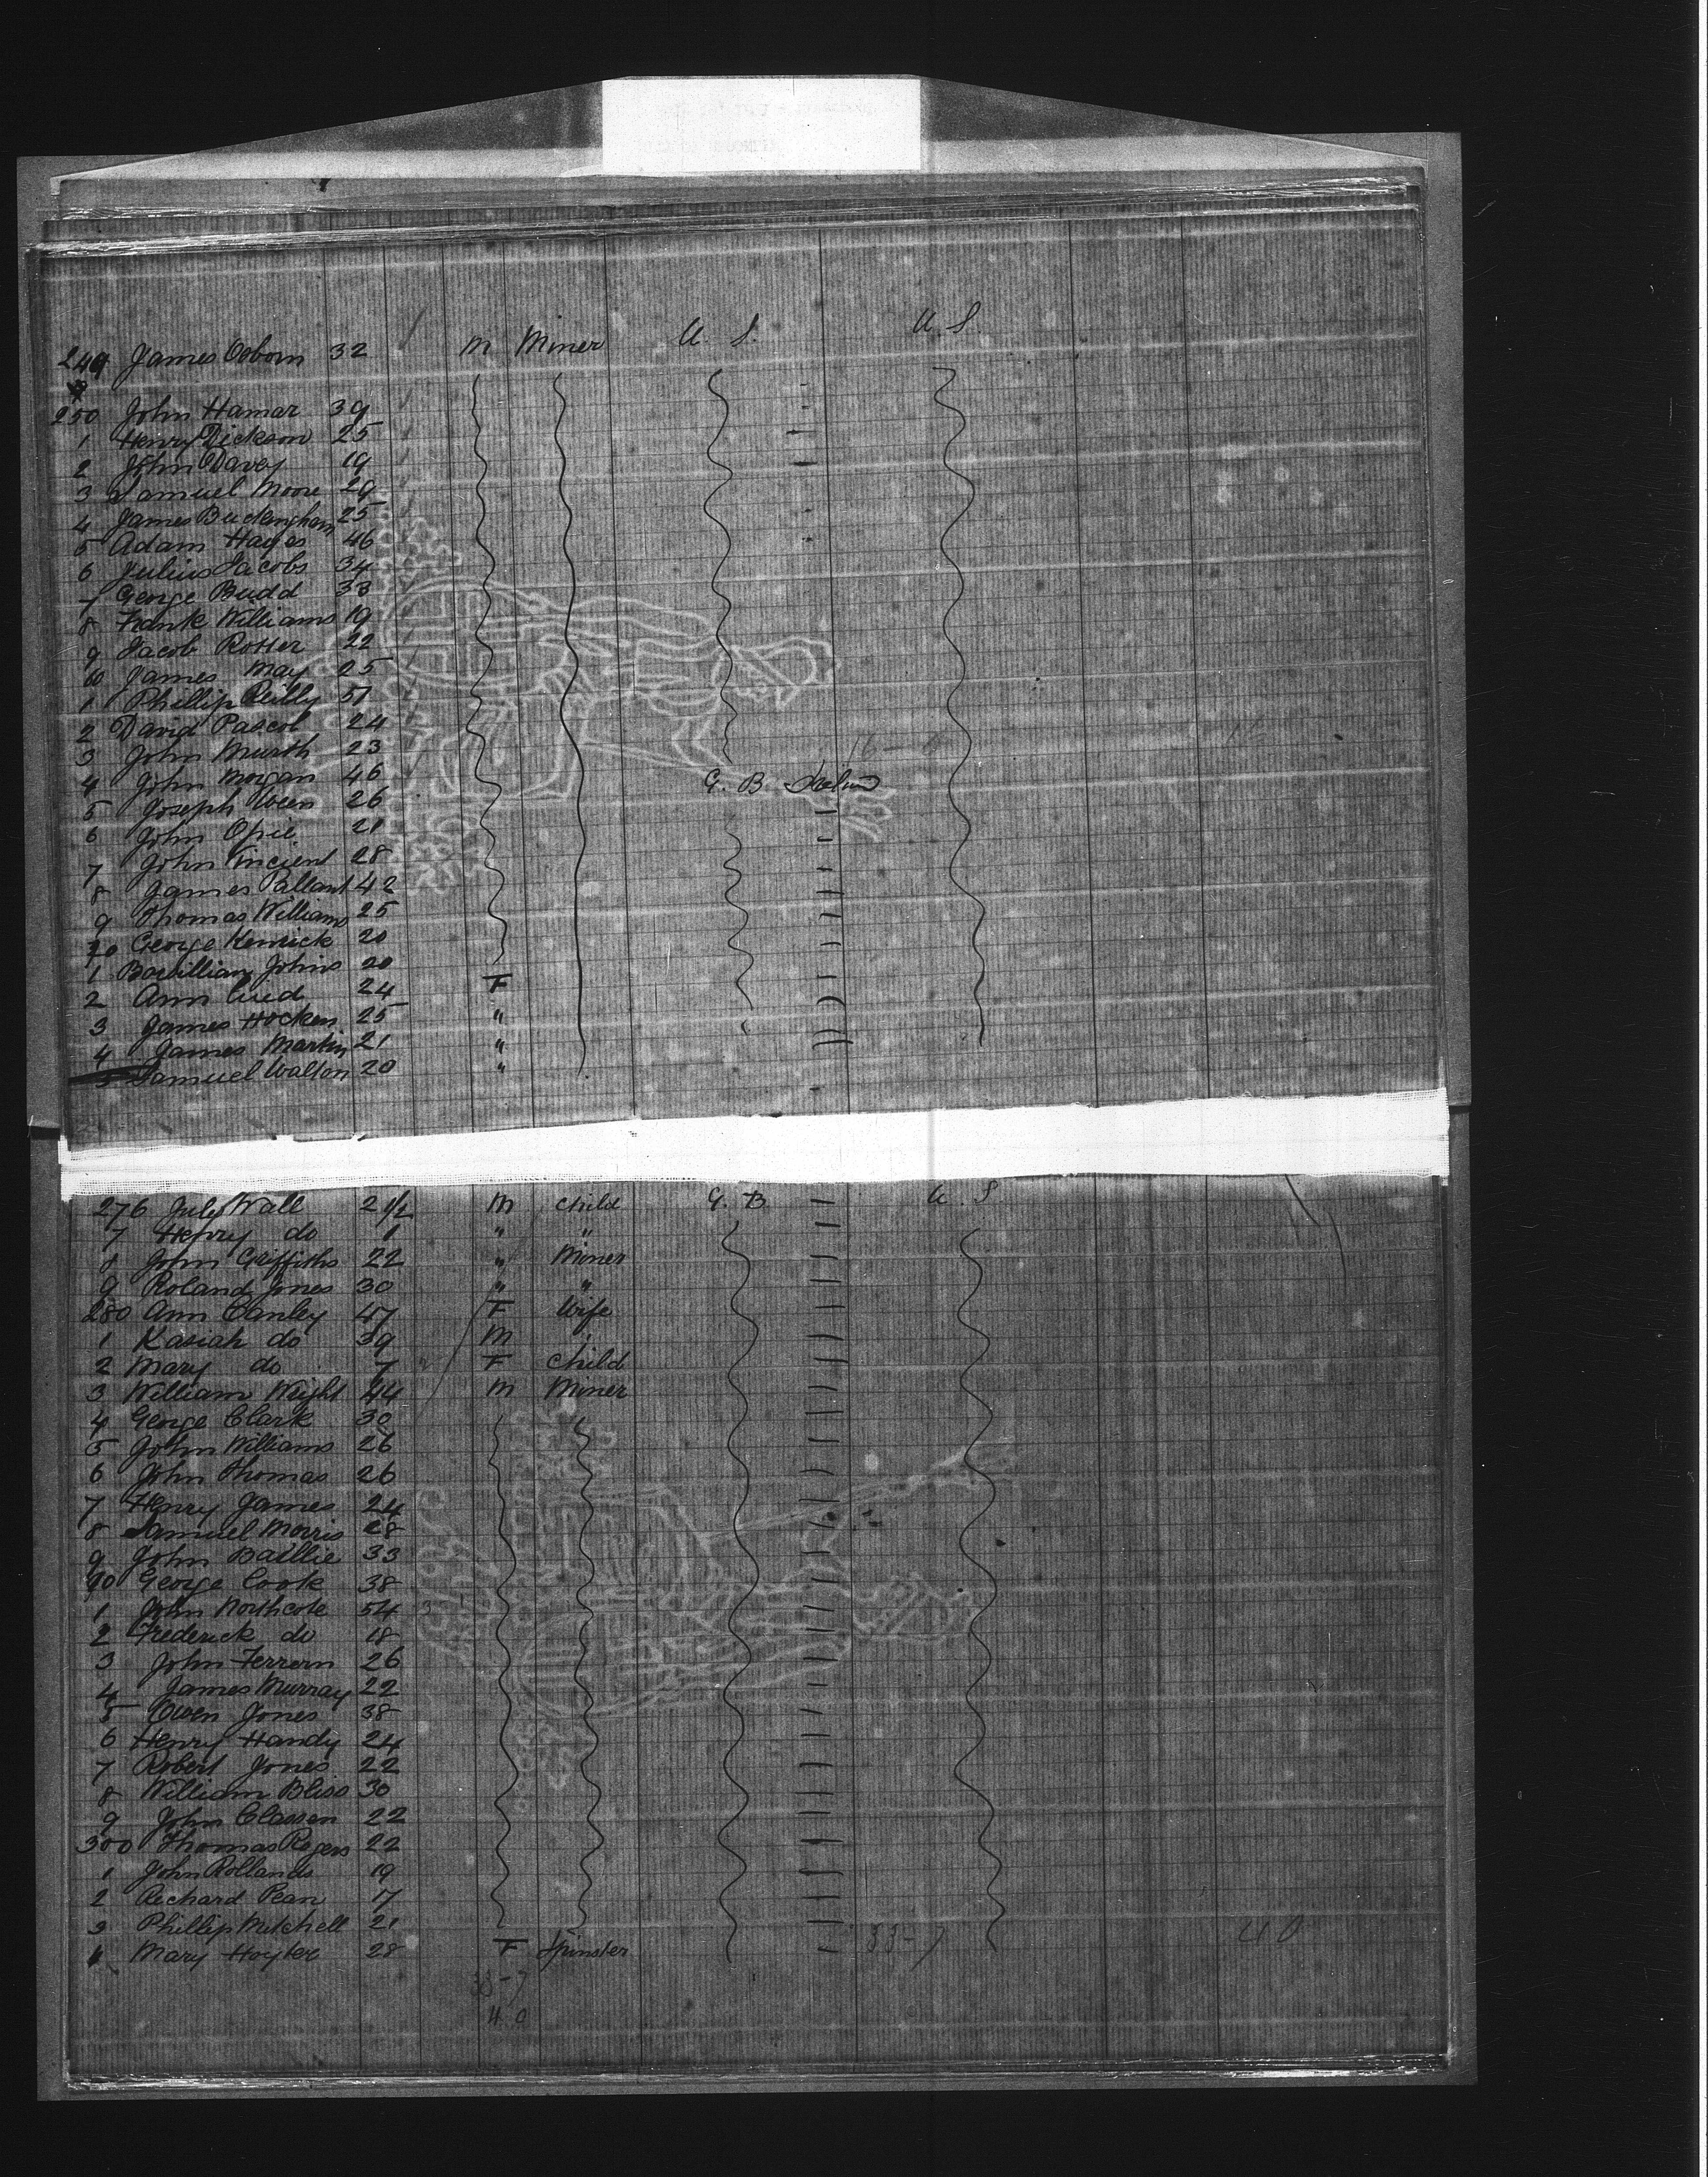 249 James Osborn 32 / M Miner U. S. U. S.
250 John Hamar 39
1 Henry Dickson 25
2 John Davey 19
3 Samuel Moore 29
4 James Buckingham 25
5 Adam Hayes 46
6 Julius Jacobs 34
7 George Budd 33
8 Frank Williams 19
9 Jacob Rosser 22
60 James May 25
1 Phillip Reilly 51
2 David Pascol 24
3 John Murth 23
4 John Morgan 46 G. B Ireland
5 Joseph Owen 26
6 John Opie 21
7 John Vincient 28
8 James Pallant 42
9 Thomas Williams 25
70 George Kenrick 20
1 Johns 20
2 Ann 24 F
3 James Hocken 25 "
4 James Martin 21 "
5 Samuel Walton 20 "
276 July Wall 2 1/2 M Child G. B — U. S
7 Henry do 1 " "
8 John Griffiths 22 " Miner
9 Roland Jones 30 " "
280 Ann Canley 47 F Wife
1 Kasiah do 39 M "
2 Mary do 7 F Child
3 William Wright 44 M Miner
4 George Clark 30
5 John Williams 26
6 John Thomas 26
7 Henry James 24
8 Samuel Morris 28
9 John Baillie 33
90 George Cook 38
1 John Northcote 54
2 Frederick do 18
3 John Ferrern 26
4 James Murray 22
5 Owen Jones 38
6 Henry Handy 24
7 Robert Jones 22
8 William Bliss 30
9 John Classen 22
300 Thomas Rogers 22
1 John Rollands 19
2 Richard Pean 17
3 Phillip Mitchell 21
4 Mary Hoyter 28 F Spinster 33-7 40
33-7
40